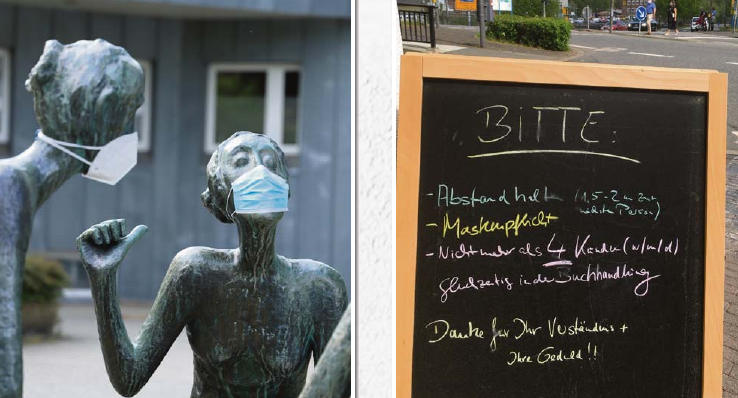 BITTE:
- Abstand halten (1,5-2m zur
nächste Person)
- Maskenpflicht
- Nicht mehr als 4 Kunden (w/m/d)
gleichzeitig in der Buchhandlung
Danke für Ihr Verständnis +
Ihre Geduld!!